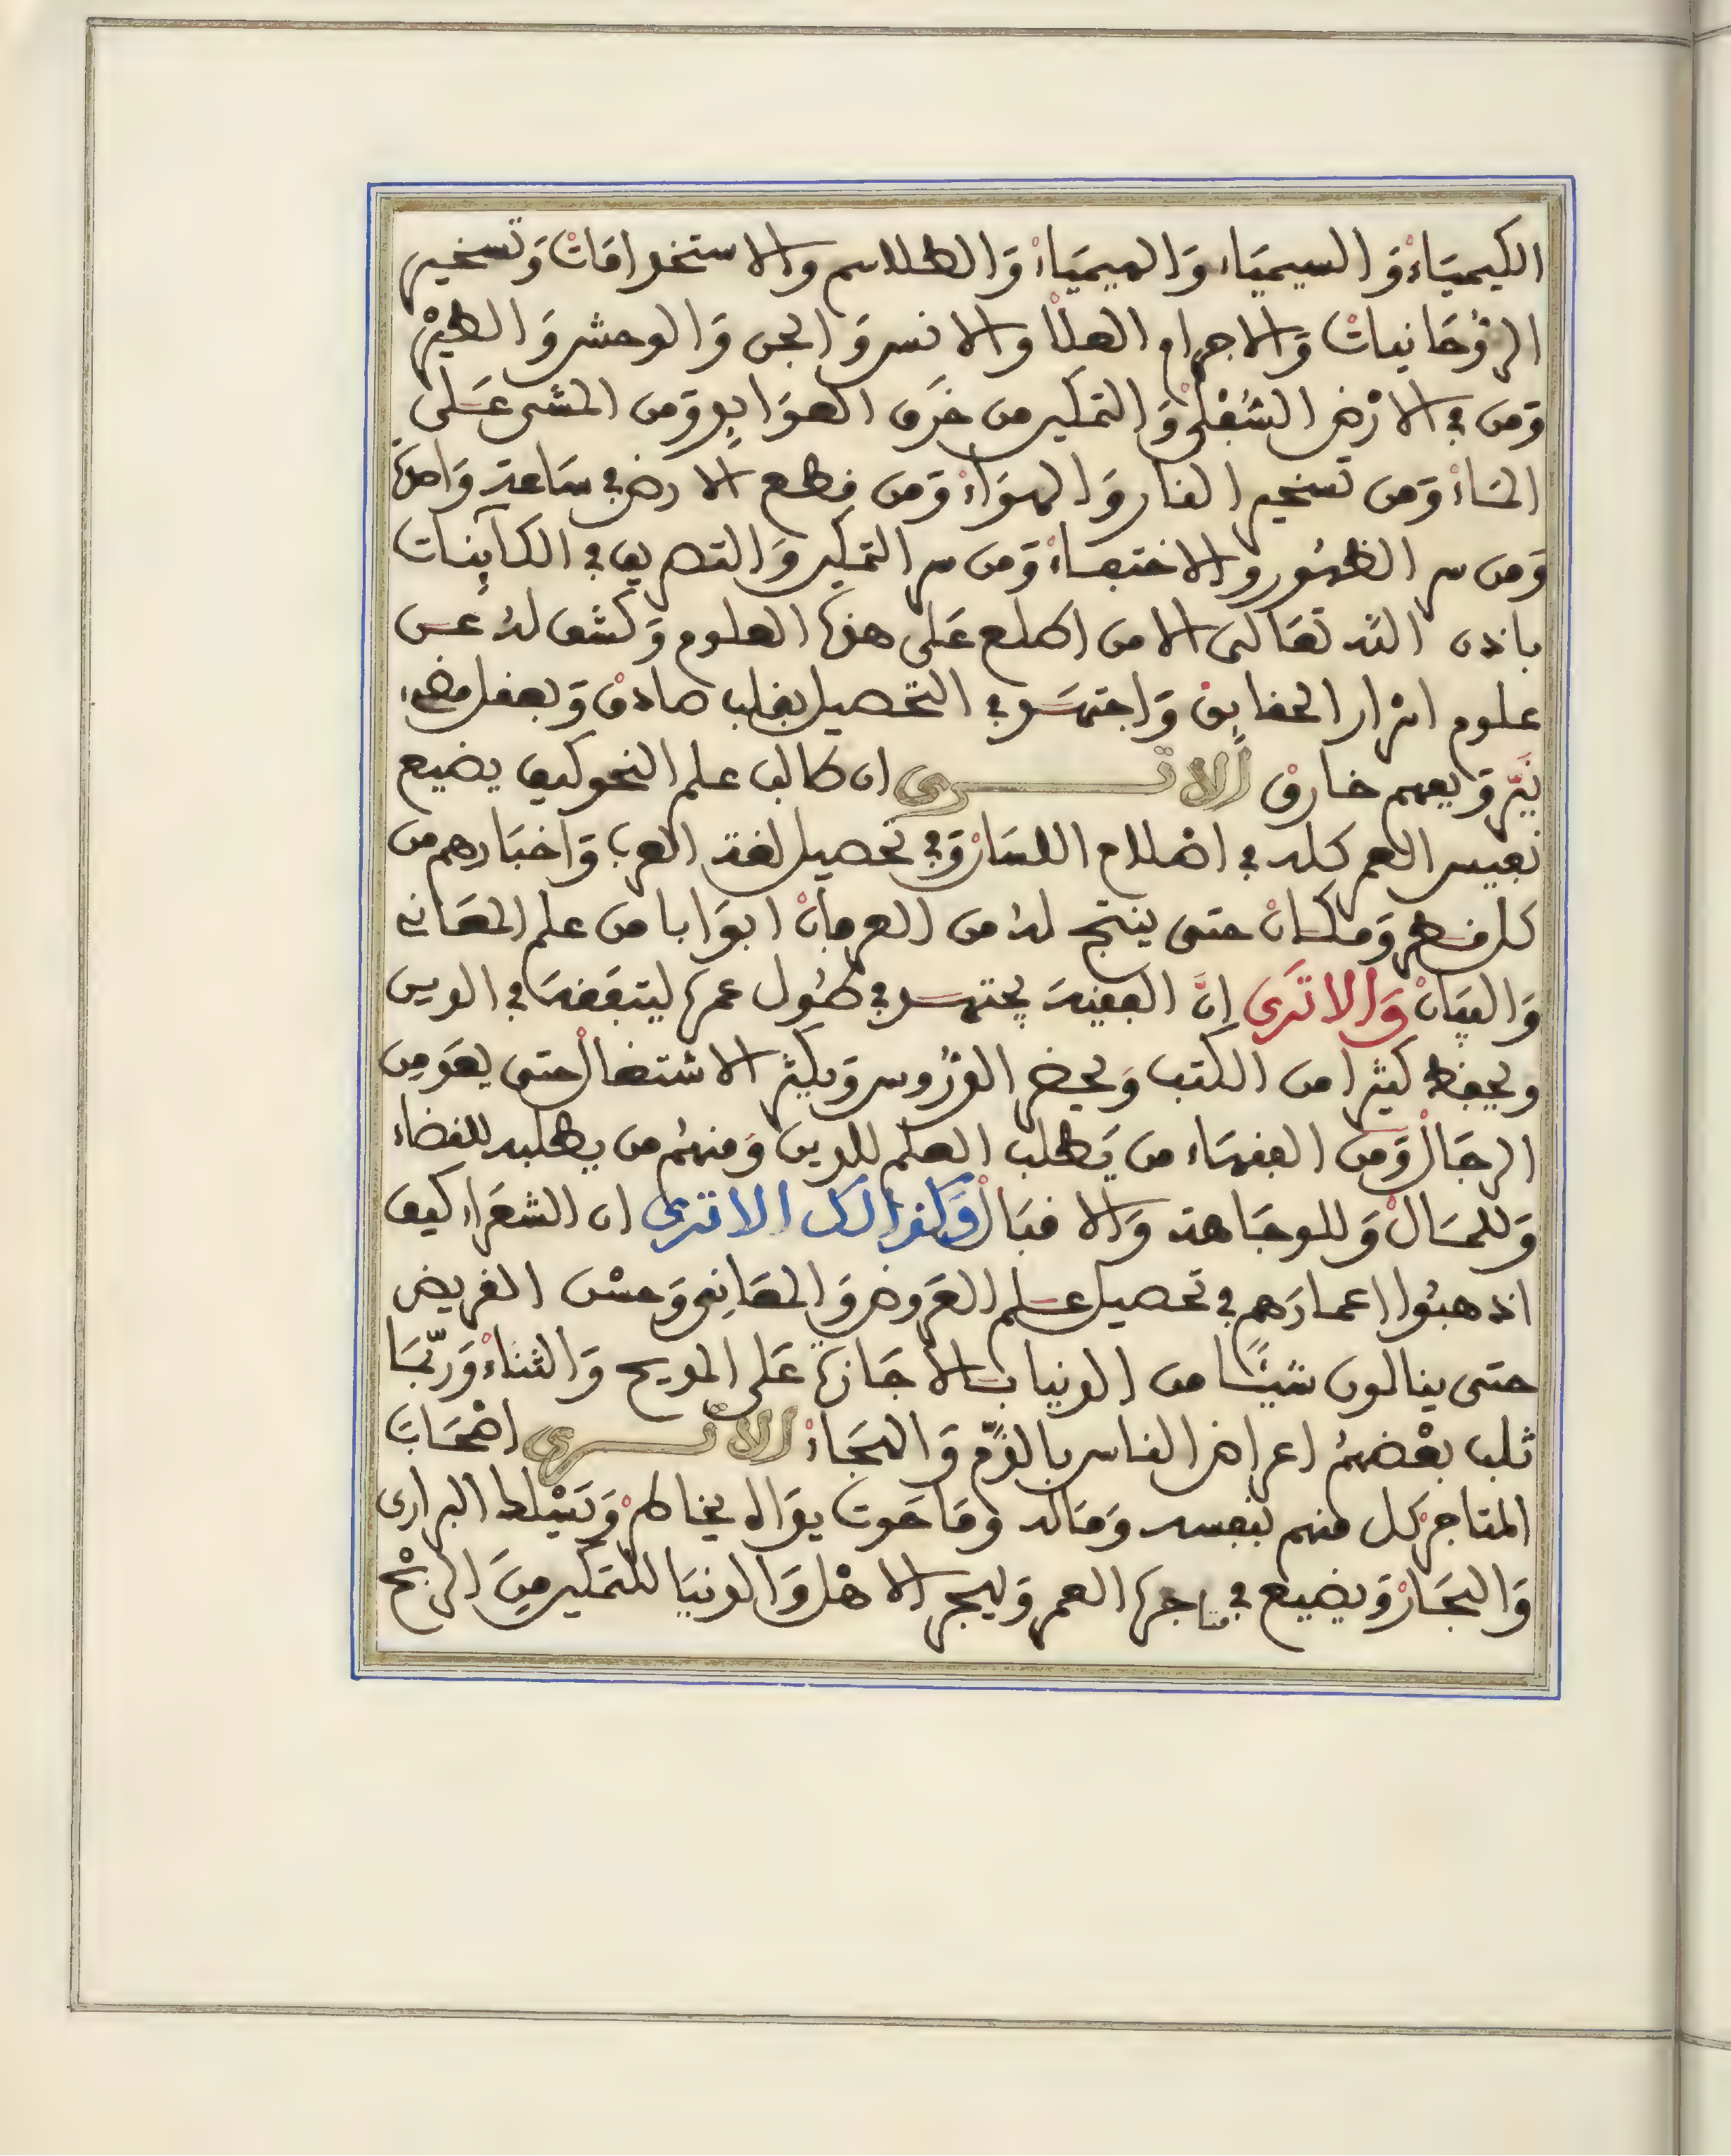 الكيمياء والسيمياء والهيمياء والطلاسم والاستخدامات وتسخير
الروحانيات والاجرام العلا والانس والجن والوحش والطير
ومن في الارض السفلى والتمكين من خرق العوايد ومن المشى على
الماء ومن تسخير النار والهواء ومن قطع الارض في ساعة واحدة
ومن سر الظهور والاختفاء ومن سر التمكين والتصريف في الكاينات
باذن الله تعالى الا من اطلع على هذه العلوم وكشف له عن
علوم اسرار الحقايق واجتهد في التحصيل بقلب صادق وبعقل مضيء
نير وبفهم خارق الا ترى ان طالب علم النحو كيف يضيع
نفيس العمر كله في اصلاح اللسان وفي تحصيل لغة العرب واخبارهم من
كل قطر ومكان حتى ينتج له من العرفان ابوابا من علم المعاني
والبيان والا ترى ان الفقيه يجتهد في طول عمره ليتفقه في الدين
ويحفظ كثيرا من الكتب ويحضر الدروس ويكثر الاشتغال حتى يعد من
الرجال ومن الفقهاء من يطلب العلم للدين ومنهم من يطلبه للقضاء
وللمال وللوجاهة والاقبال وكذالك الا ترى ان الشعراء كيف
اذهبوا اعمارهم في تحصيل علم العروض والمعانى وحسن القريض
حتى ينالون شيئا من الدنيا بالاجازة على المديح والثناء وربما
ثلب بعضهم اعراض الناس بالذم والهجاء الا ترى اصحاب
المتاجر كل منهم بنفسه وماله وما حوت يداه يخاطر ويسلك البرارى
والبحار ويضيع في متاجره العمر ويهجر الاهل والدنيا للتمكين من الربح